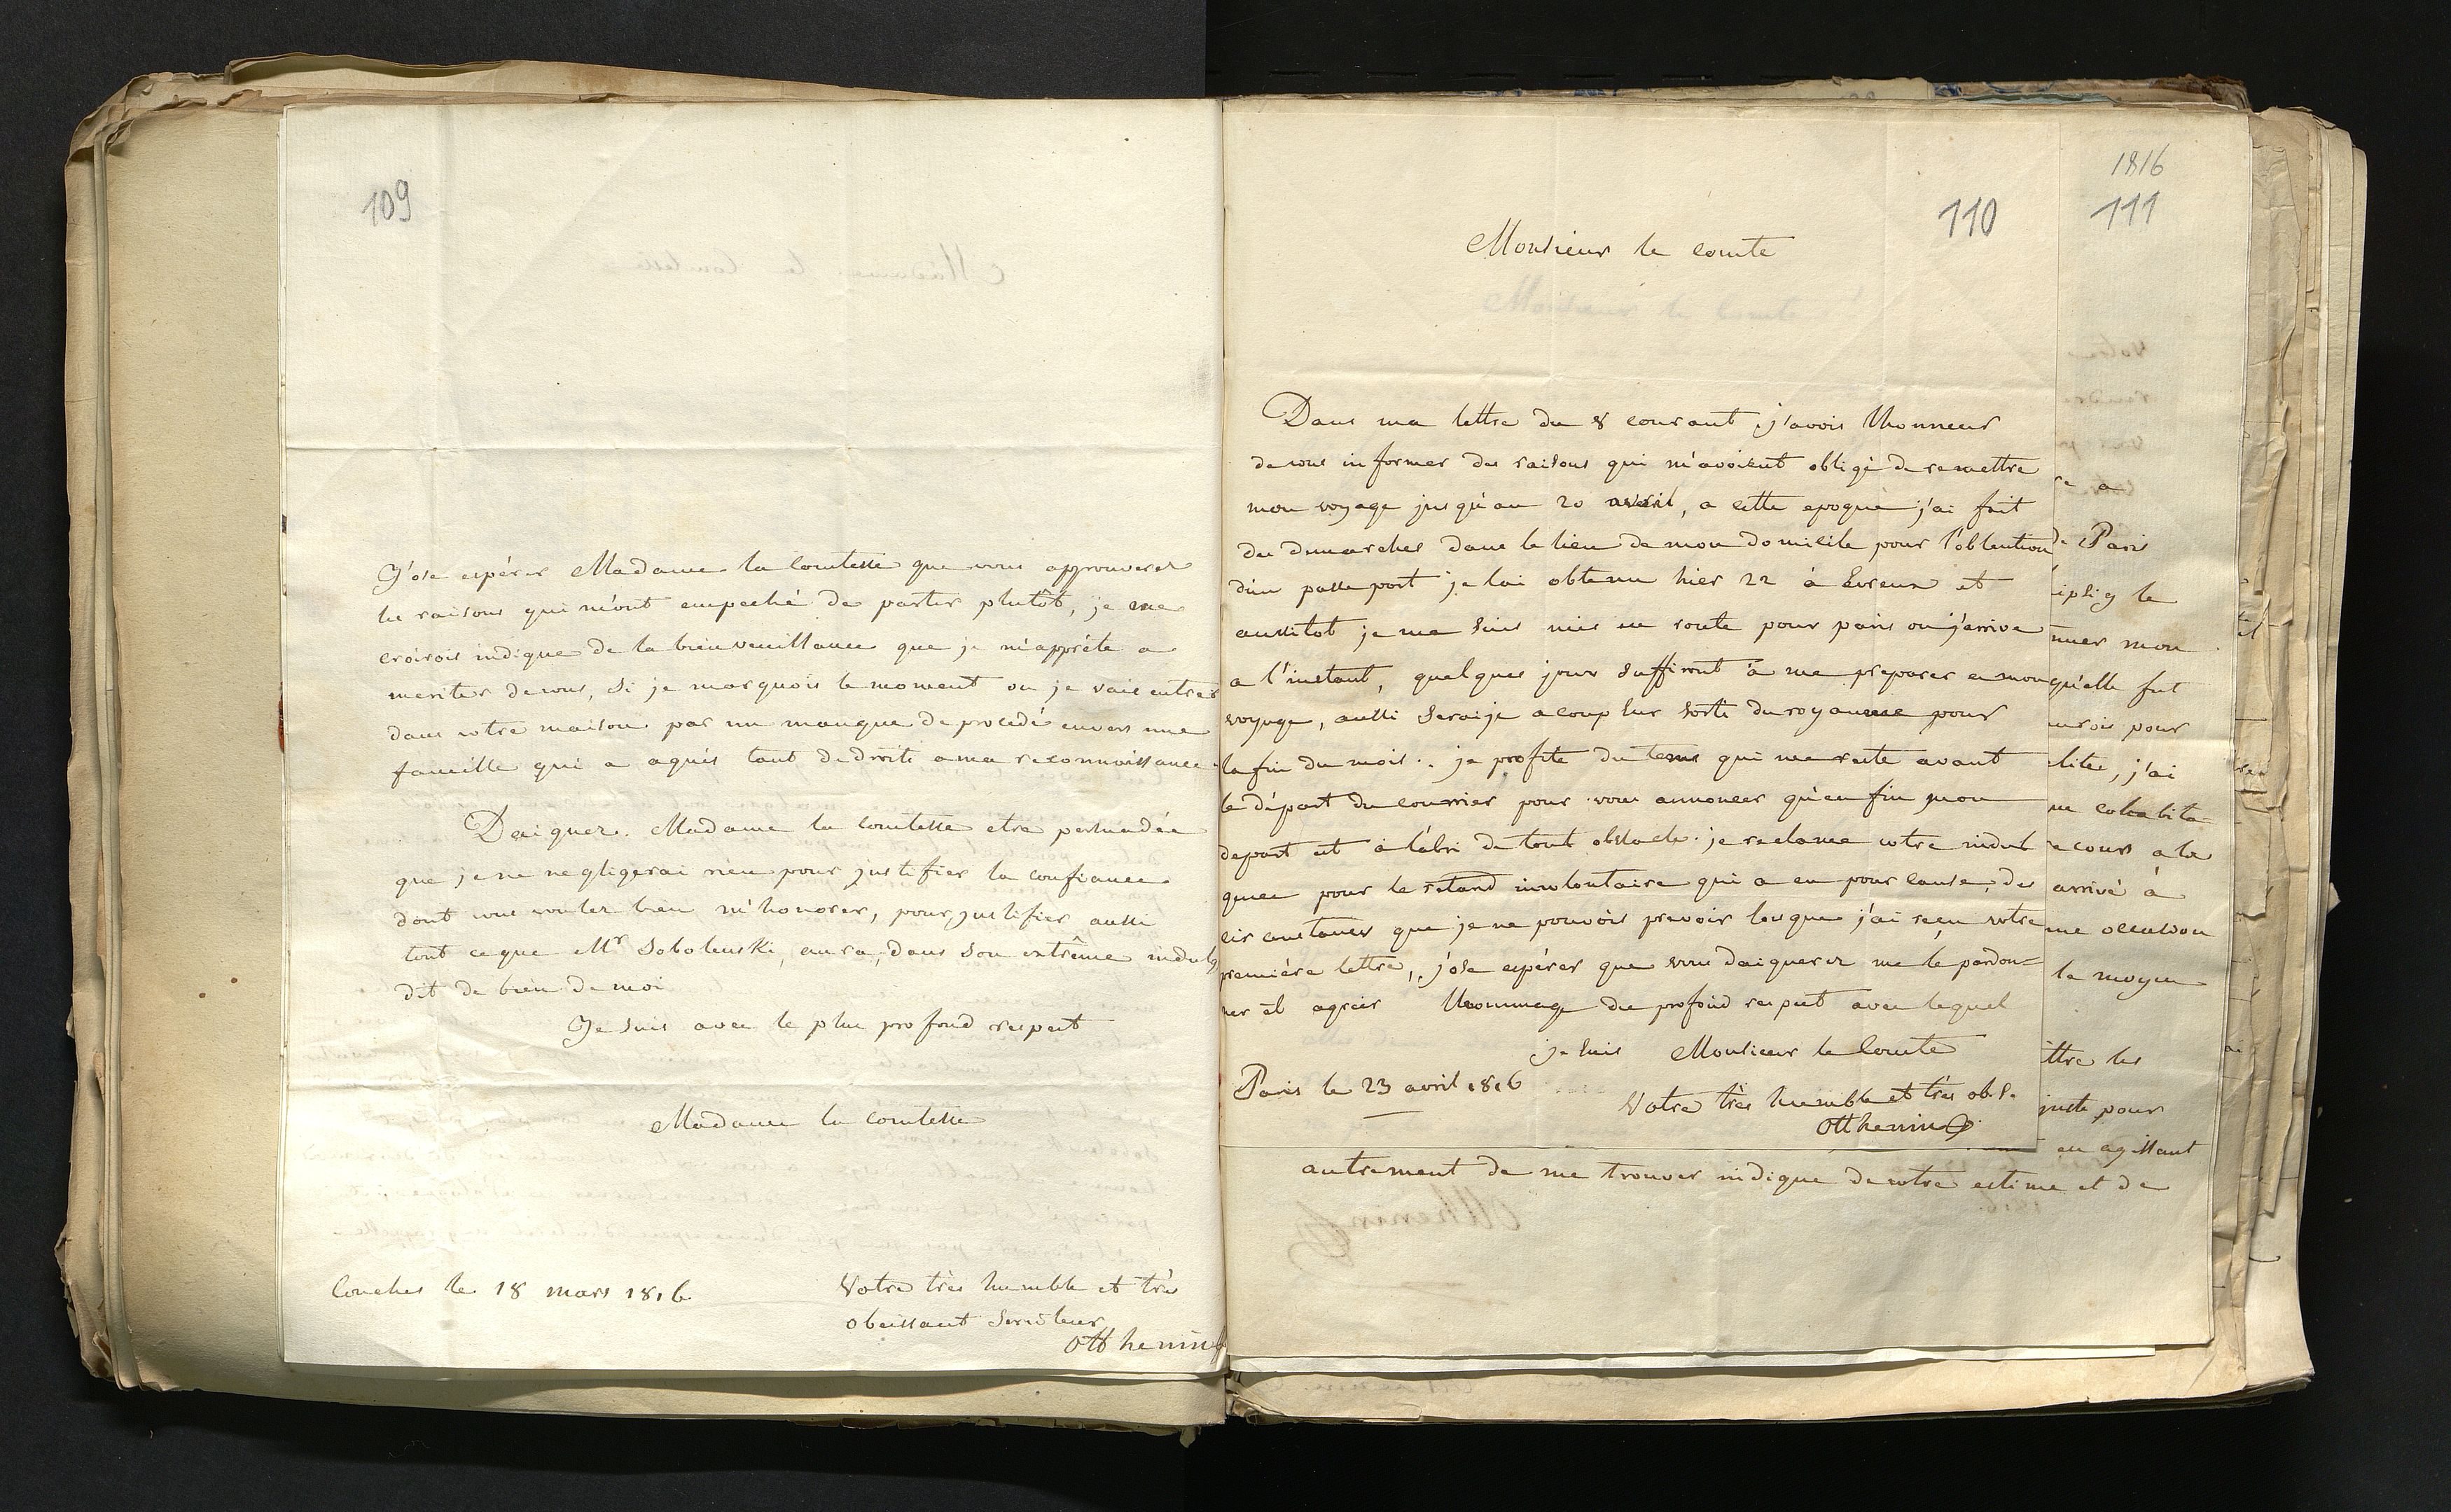 109
J'ose espérer Madame la comtesse que vous approuverez
les raisons qui m'ont empeché de partir plutôt, je me
croirois indigne de la bienveuillance que je m'apprête a
meriter de vous, si je marquois le moment ou je vais entrer
dans votre maison par un manque de procédé envers une
famille qui a aquis tant de droits a ma reconnoissance.
Daignez Madame la comtesse etre persuadée
que je ne negligerai rien pour justifier la confiance
dont vous voulez bien m'honorer, pour justifier aussi
tout ce que Mr Sobolenski, aura, dans son extrême indulg
dit de bien de moi
Je suis avec le plus profond respect
Madame la comtesse
Conches le 18 mars 1816
Votre très humble et très
obeissant serviteur
Otthenin
110
Monsieur le comte
Dans ma lettre du 8 courant j'avois l'honneur
de vous informer des raisons qui m'avoient obligé de remettre
mon voyage jusqu'au 20 avril, a cette epoque j'ai fait
des dmarches dans le lieu de mon domicile pour l'obtention
d'un passeport je l'ai obtenu hier 22 à Evreux et
aussitot je me suis mis en route pour paris ou j'arrive
a l'instant, quelques jours suffiront à me préparer a mon
voyage, aussi serai je a coup sur sorti du royaume pour
la fin du mois. je profite du tems qui me reste avant
le départ du courrier pour vous annoncer qu'enfin mon
depart est à l'abri de tout obstacle. je reclame votre indul
gence pour le retard involontaire qui a eu pour cause, des
circonstances que je ne pouvois prevoir lorsque j'ai reçu votre
première lettre, j'ose espérer que vous daignerez me le pardon=
ner et agréer l'hommage du profond respect avec lequel
je suis Monsieur le Comte
Paris le 23 avril 1816
Votre très humble et très ob.S.
Otthenin
1816
111
de Paris
ipsig le
nuer mon
qu'elle fut
urois pour
elitee, j'ai
ne cohabita=
recours a la
arrivé à
me occasion
le moyen
ttre les
juste pour
en agissant
autrement de me trouver indigne de votre estime et de